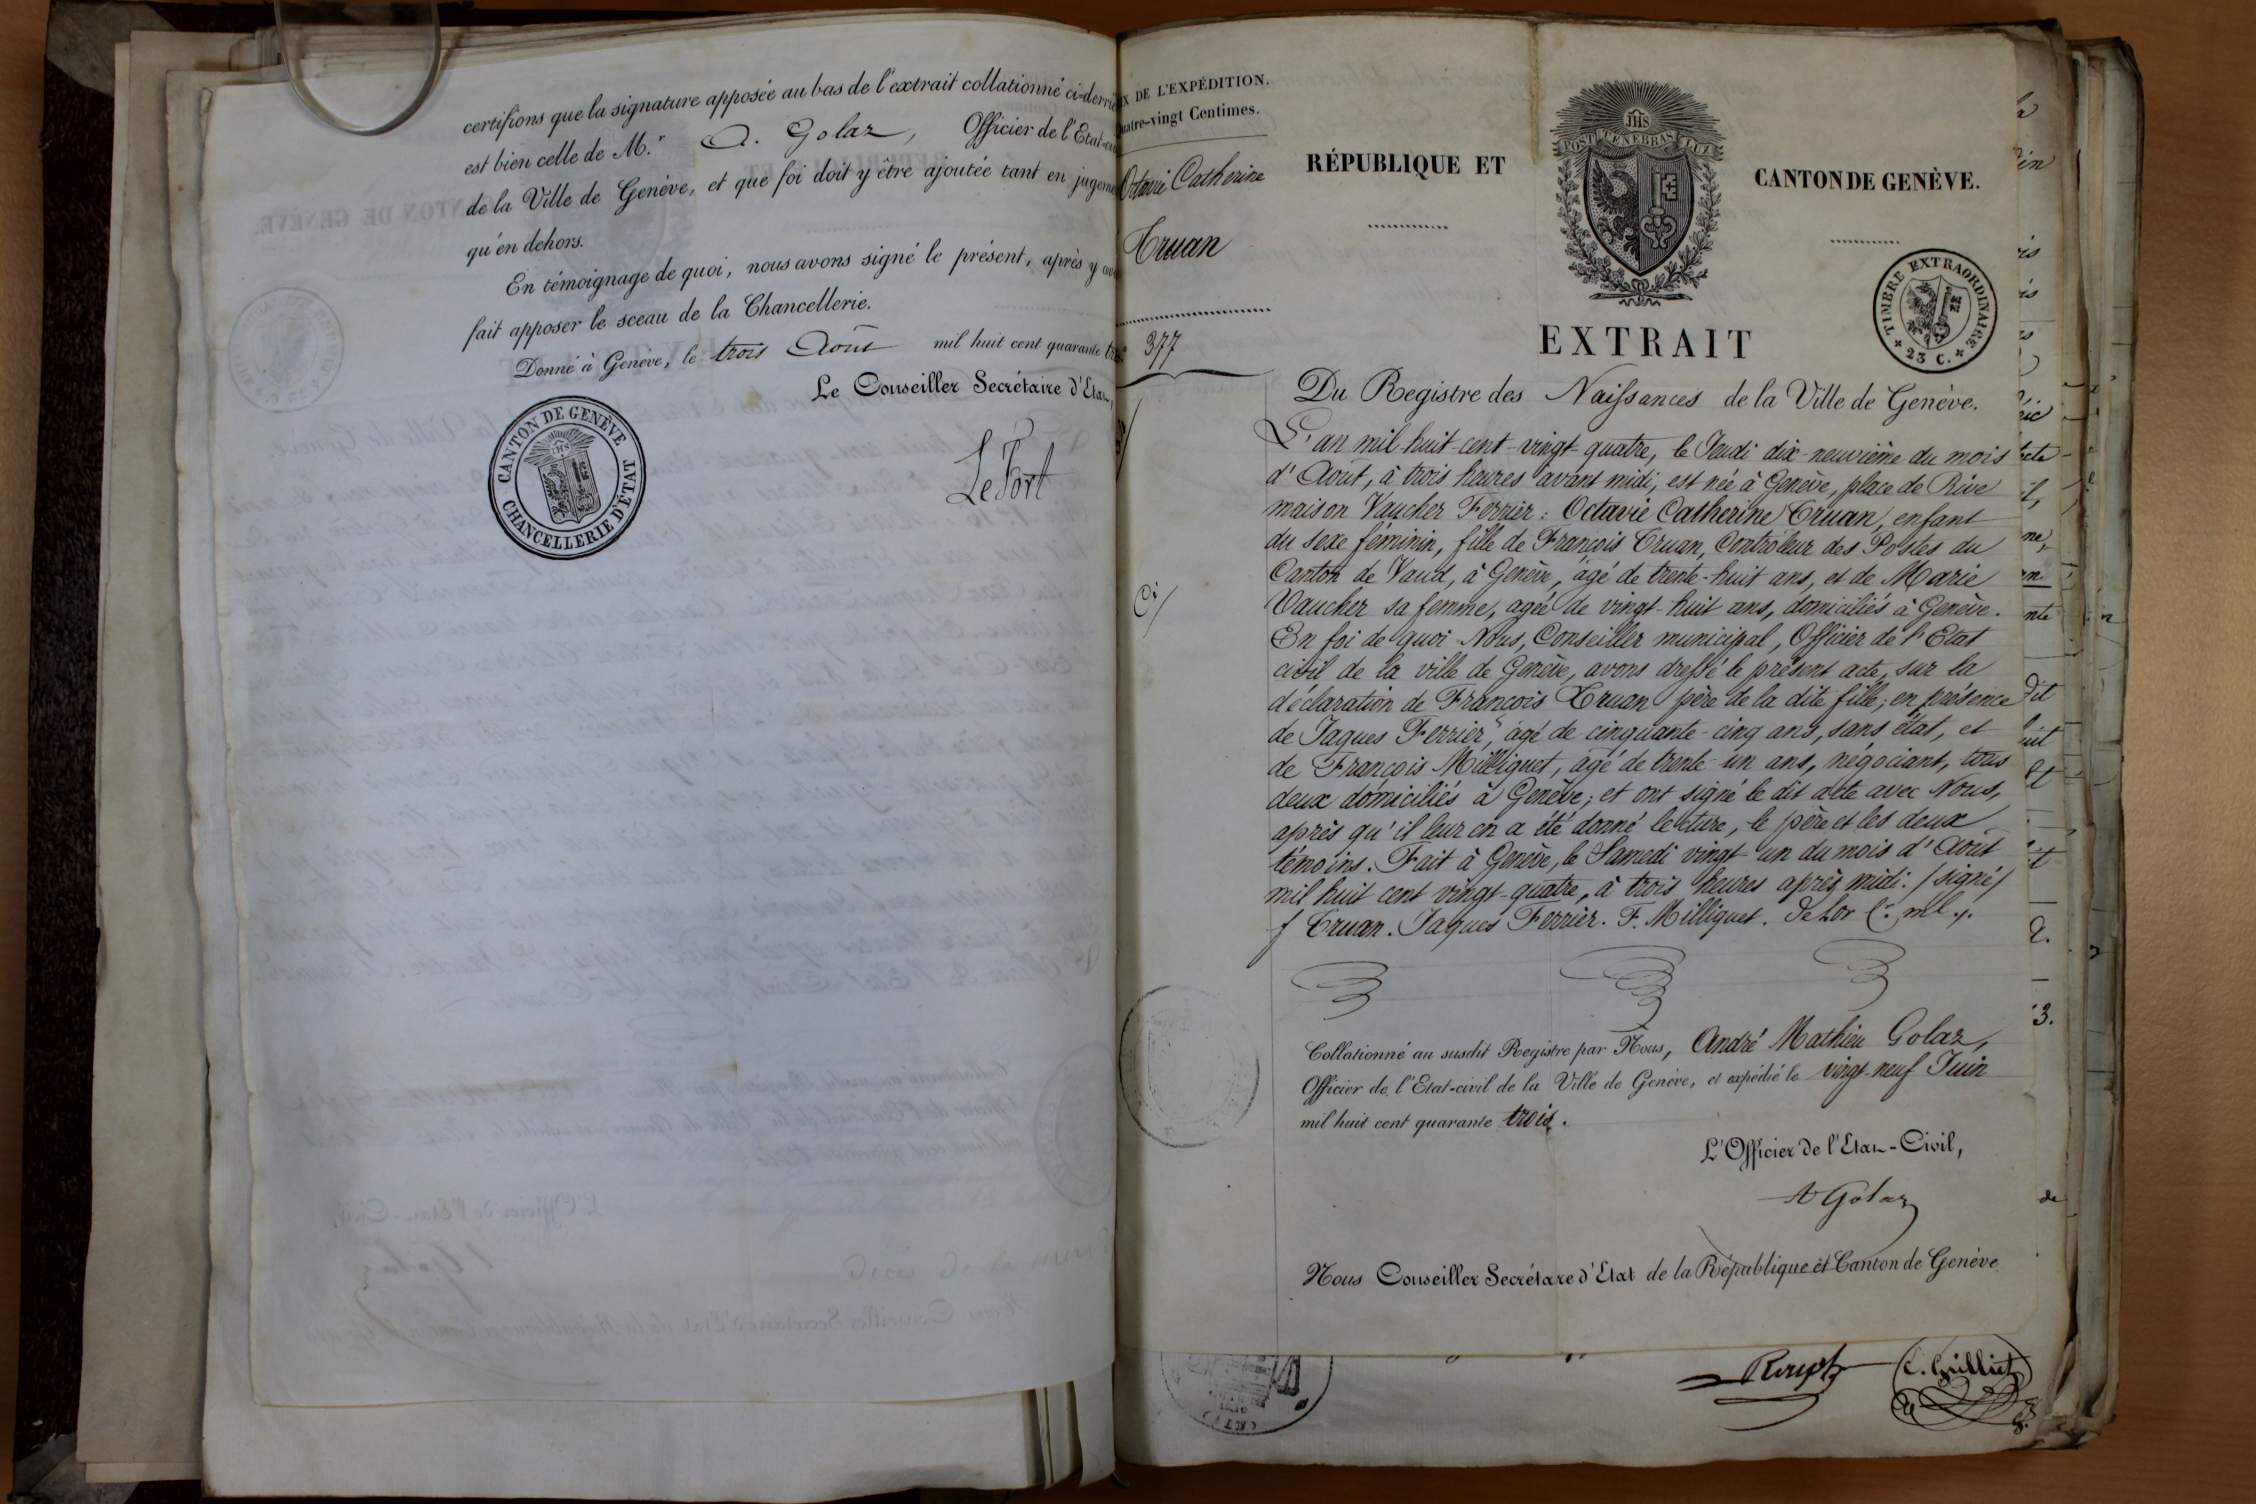 certifions que la signature apposée au bas de l'extrait collationné ci-derri
est bien celle de M.r A. Golaz, Officier de l'Etat-ci
de la Ville de Genève, et que foi doit y être ajoutée tant en jugeme
qu'en dehors.
En témoignage de quoi, nous avons signé le présent, après y avo
fait apposer le sceau de la Chancellerie.
Donné à Genève, le trois Août mil huit cent quarante tr
Le Conseiller Secrétaire d'Etat,
CANTON DE GENÈVE
CHANCELLERIE D'ETAT
Le Fort
X DE L'EXPÉDITION.
uatre-vingt Centimes.
Octavie Catherine
Truan
377
RÉPUBLIQUE ET
JHS
POST TENEBRAS LUX
CANTON DE GENÈVE.
TIMBRE EXTRAORDINAIRE
25 C.
EXTRAIT
Du Registre des Naissances de la Ville de Genève.
L'an mil huit-cent-vingt-quatre, le Jeudi dix-neuvième du mois
d'Août, à trois heures avant midi, est née à Genève, place de Rive
maison Vaucher Ferrier: Octavie Catherine Truan, enfant
du sexe féminin, fille de François Truan, Contrôleur des Postes du
Canton de Vaud, à Genève, âgé de trente-huit ans, et de Marie
Vaucher sa femme, agée de vingt-huit ans, domiciliés à Genève.
En foi de quoi Nous, Conseiller municipal, Officier de l'Etat
civil de la ville de Genève, avons dressé le présent acte, sur la
déclaration de François Truan père de la dite fille; en présence
de Jaques Ferrier, âgé de cinquante-cinq ans, sans état, et
de François Milliquet, âgé de trente-un ans, négociant, tous
deux domiciliés à Genève; et ont signé le dit acte avec Nous,
après qu'il leur en a été donné lecture, le père et les deux
témoins. Fait à Genève, le Samedi vingt-un du mois d'Août
mil huit cent vingt-quatre, à trois heures après midi. /signé/
f Truan. Jaques Ferrier. F. Milliquet. DeLor C.r ml.
Collationné au susdit Registre par Nous, André Mathieu Golaz,
Officier de l'Etat-civil de la Ville de Genève, et expédié le vingt-neuf Juin
mil huit cent quarante trois.
L'Officier de l'Etat-Civil,
A Golaz
Nous Conseiller Secrétaire d'Etat de la République et Canton de Genève